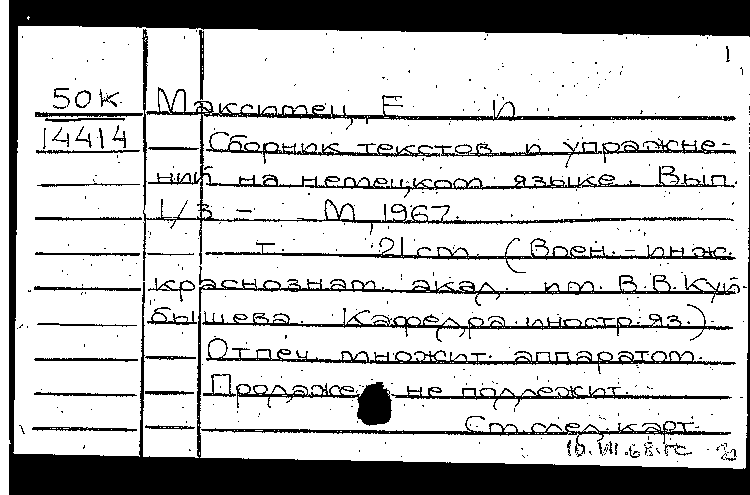 1
50К Максимец, Е И
14414 Сборник текстов и упражне-
ний на немецком языке. Вып.
1/3 - М, 1967.
т. 21 cm. (Воен.-инж.
краснознам. акад. им. В.В.Куй-
бышева. Кафедра иностр. яз.)
Отпеч. множит. аппаратом.
Продаже не подлежит.
См. след. карт.